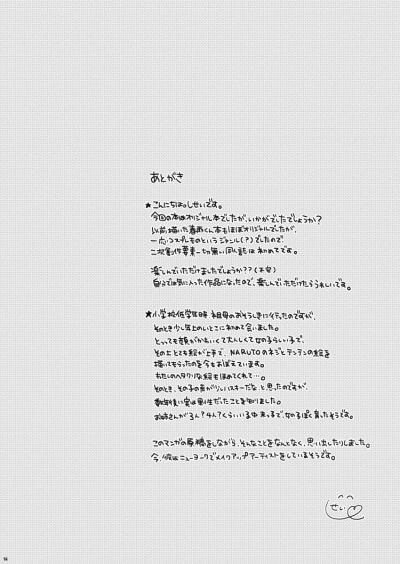 あとがき
★こんにちは。しせいです。
今回の本はオリジナル本でしたが、いかがでしたでしょうか?
以前描いた くん本もほぼオリジナルでしたが、
一応コスプレものというジャンル(?)でしたので、
二次創作要素一切無い同人誌は初めてです。
楽しんでいただけましたでしょうか??(不安)
自分では気に入った作品になったので、楽しんでいただけたらうれしいです。
★小学校低学年時 祖母のおそうしきに行ったのですが、
そのとき少し年上のいとこに初めて会いました。
とっても顔がかわいくて大人しくて女の子らしい子で、
その上 とても絵が上手で、NARUTOのネジとテンテンの絵を
描いてもらったのを今もおぼえています。
わたしのヘタクソな絵もほめてくれて…。
そのとき、その子の声がハスキーだな と思ったのですが、
数年後に実は男性だったことを知りました。
お姉さんが3人?4人?くらいいる中 末っ子で女の子ぽく育ったそうです。
このマンガの原稿をしながら、そんなことをなんとなく、思い出したりしました。
今、彼はニューヨークでメイクアップアーティストをしているそうです。
せい